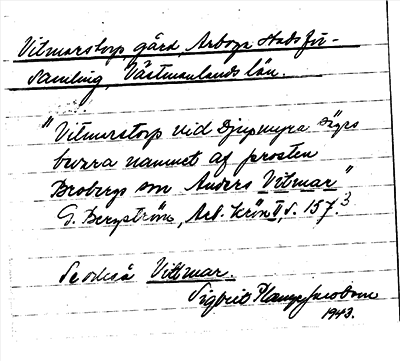 Vitmarstorp, gård, Arboga Stadsför-
samling, Västmanlands län.
"Vitmarstorp vid Djupmyra säges
burra namnet af prosten
Brobergs son Anders Vitmar"
G. Bergström, Arb. krön II, s. 157.3
Se också Vittmar.
Sigbrit Plænge Jacobson
1943.